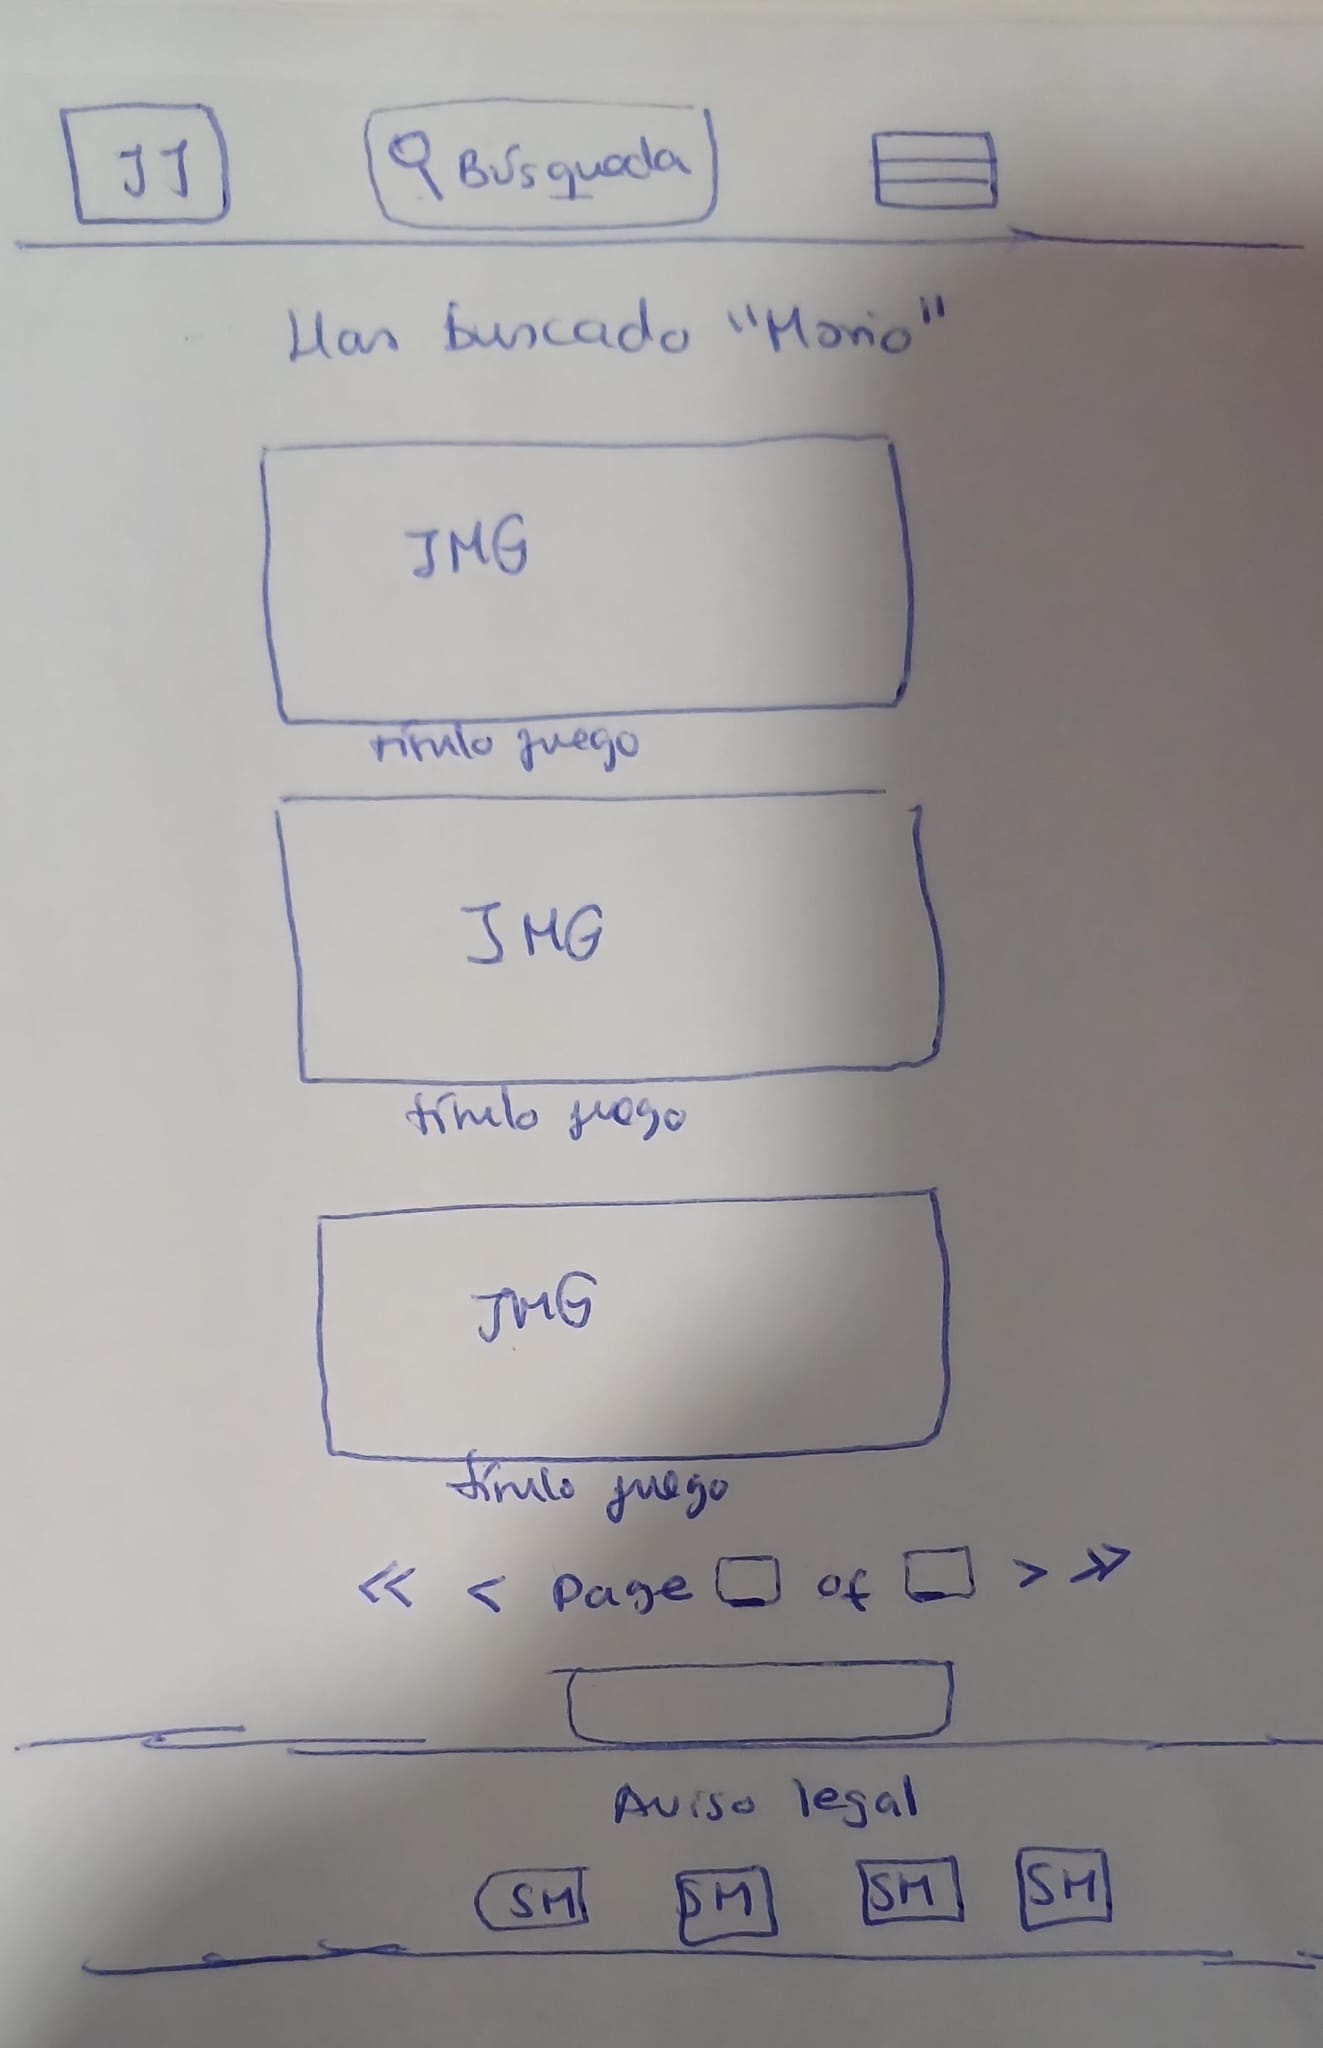 JJ
Búsqueda
Has buscado "Mario"
IMG
título juego
IMG
título juego
IMG
título juego
<< < Page of > >>
Aviso legal
SM SM SM SM